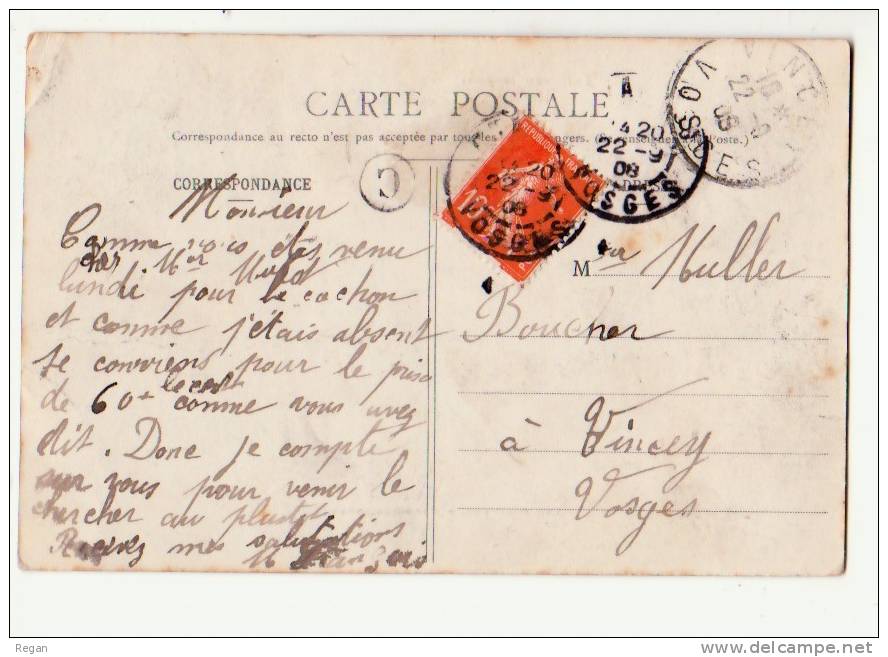 CARTE POSTALE
A
Correspondance au recto n'est pas acceptée par tous les
CORRESPONDANCE
ADRESSE
C
VINCEY
VOSGES
22 -9
08
14 20
22 -9
08
VOSGES
20
22 -9
08
VOSGES
REPUBLIQUE
10
Monsieur
Comme vous êtes venu
lundi pour le cochon
et comme j'étais absent
je conviens pour le prix
de 60 comme vous avez
dit. Donc je compte
sur vous pour venir le
chercher au plustot
Recevez mes salutations
Mr Muller
Boucher
à Vincey
Vosges
Regan
delcampe.net